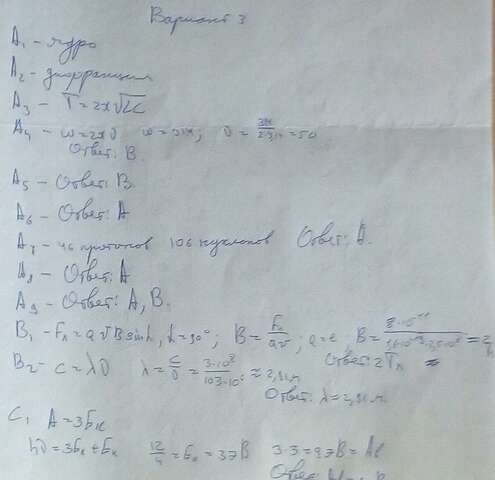 Вариант 3
A₁ – ядро
A₂ – дифракция
A₃ – T = 2π√LC
A₄ – ω = 2πν ω = 314; ν = 314/2·3,14 = 50
Ответ: В.
A₅ – Ответ: В.
A₆ – Ответ: А
A₇ – 46 протонов 106 нуклонов Ответ: А.
A₈ – Ответ: А
A₉ – Ответ: А, В.
B₁ – Fл = qvB sinα, α = 90°; B = Fл/qv; q = e; B =
Ответ: 2Тл
B₂ – c = λν λ = c/ν = 3·10⁸/103·10⁶ ≈ 2,91м
Ответ: λ = 2,91м.
C₁ A = 3Eк
hν = 3Eк + Eк 12/4 = Eк = 3эВ 3·3 = 9эВ = Aв
Ответ: